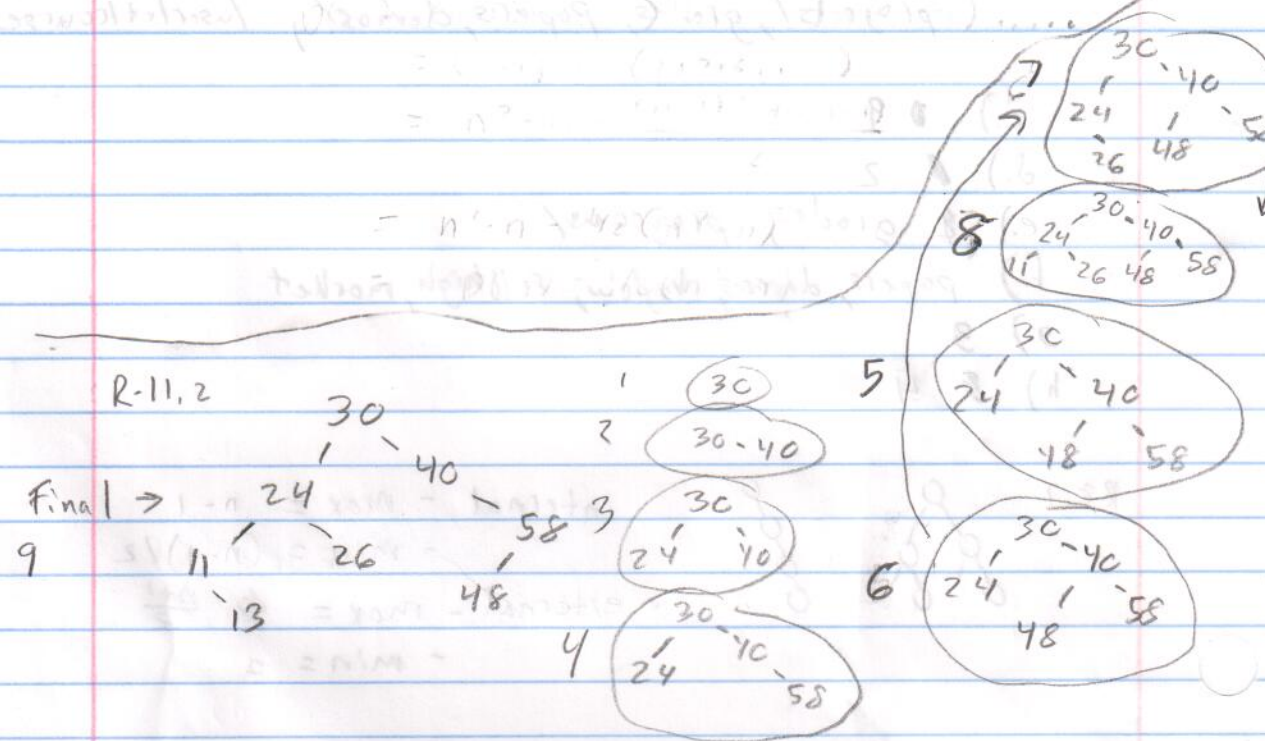 7
30
40
24
26 48
8
30 40
24
11 26 48 58
5
30
24 40
48 58
6
30 40
24 58
48
R-11.2
30
40
Final → 24
58
9 11 26
48
13
1 30
2 30 40
3 30
24 40
4 30 40
24
58